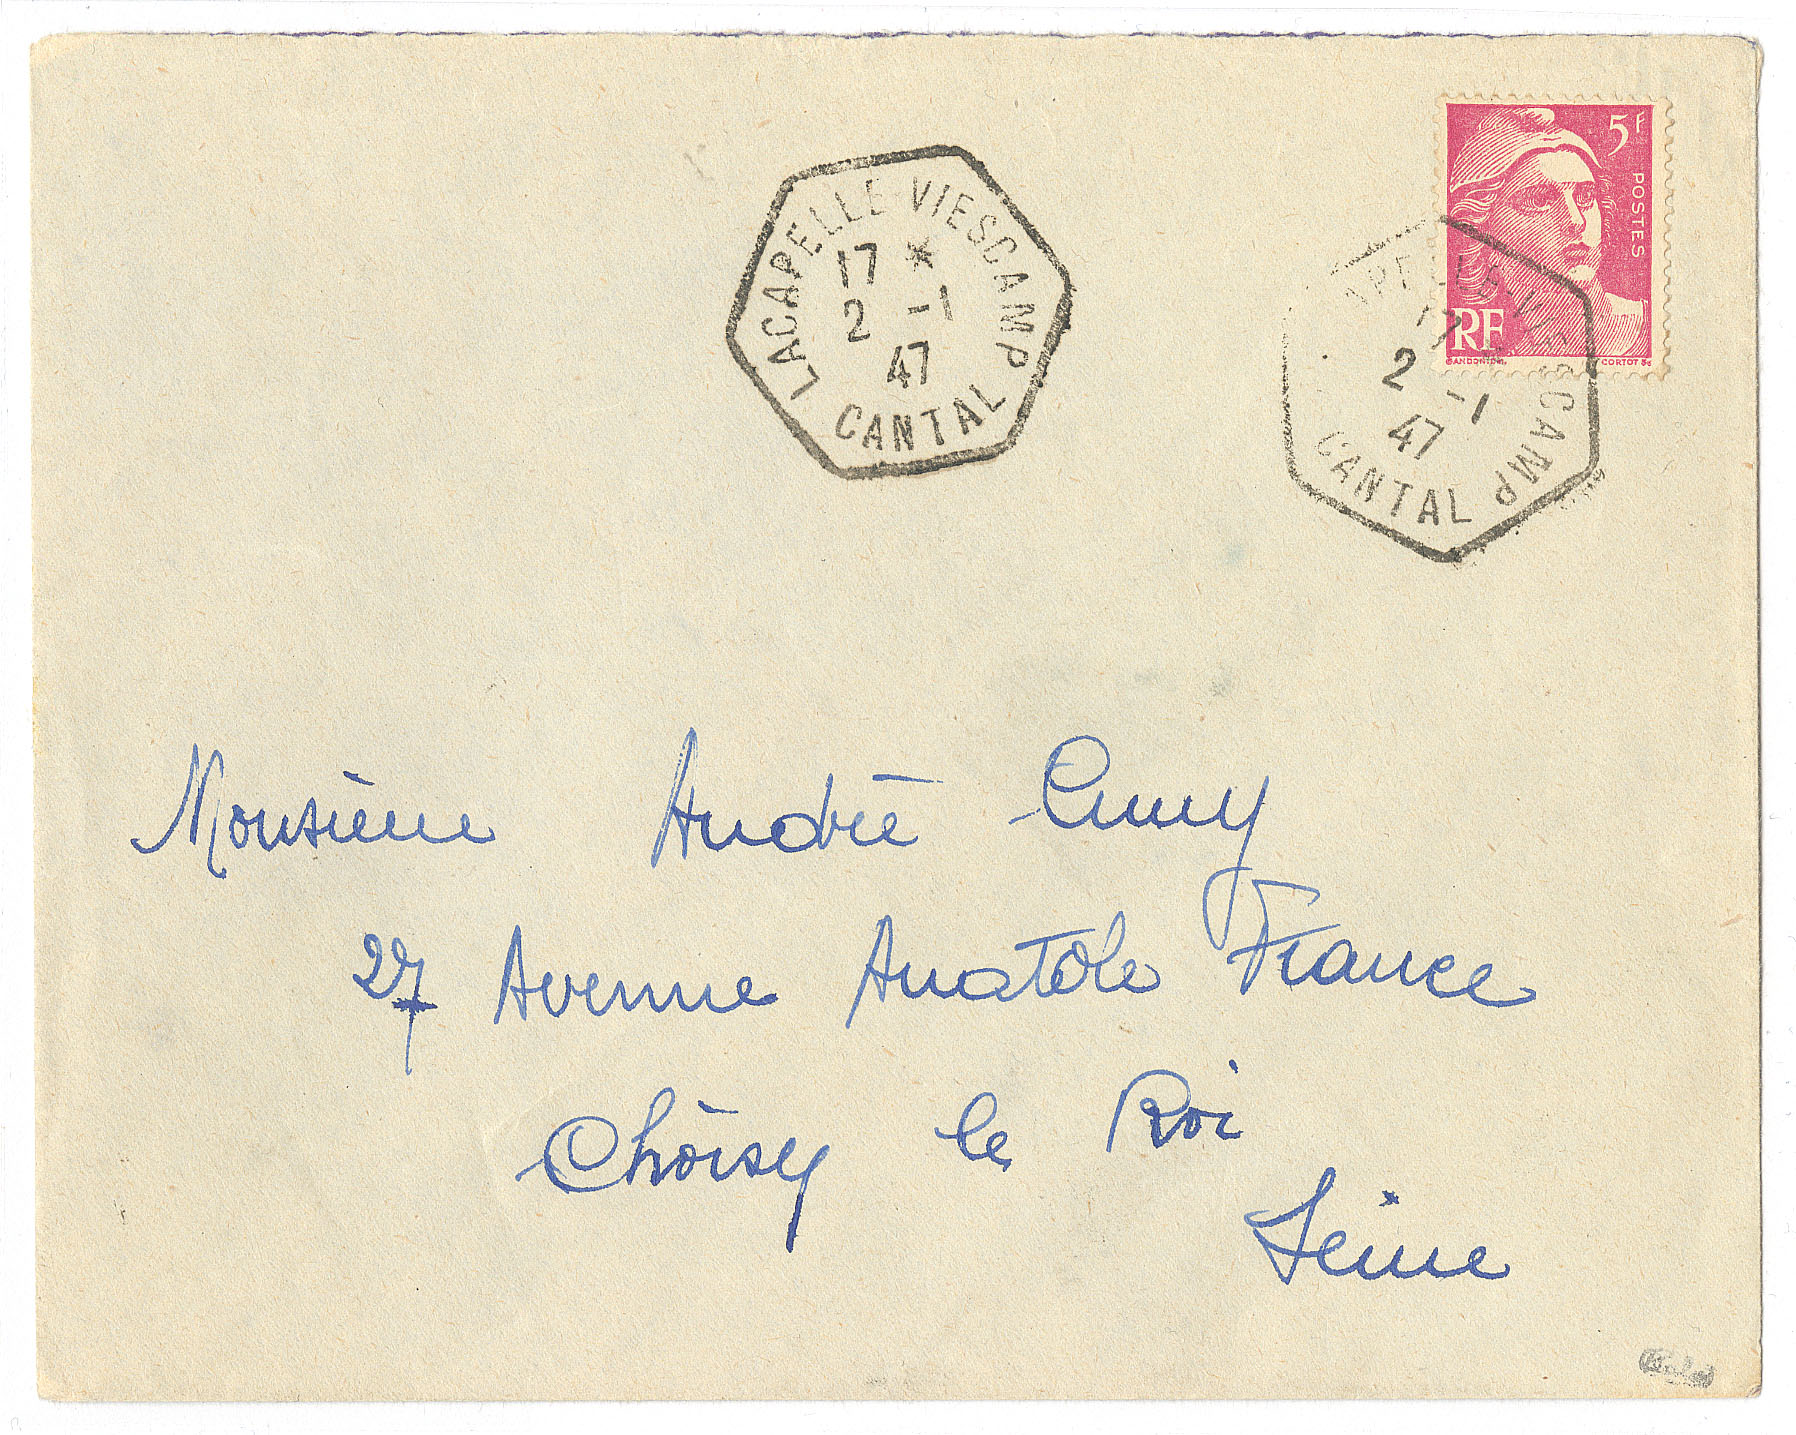 LACAPELLE-VIESCAMP
17 *
2 -1
47
CANTAL
5F
POSTES
RF
GANDON DEL.
CORTOT SC
APELLE-VIESCAMP
17 *
2 -1
47
CANTAL
Monsieur André Cumy
27 Avenue Anatole France
Choisy le Roi
Seine